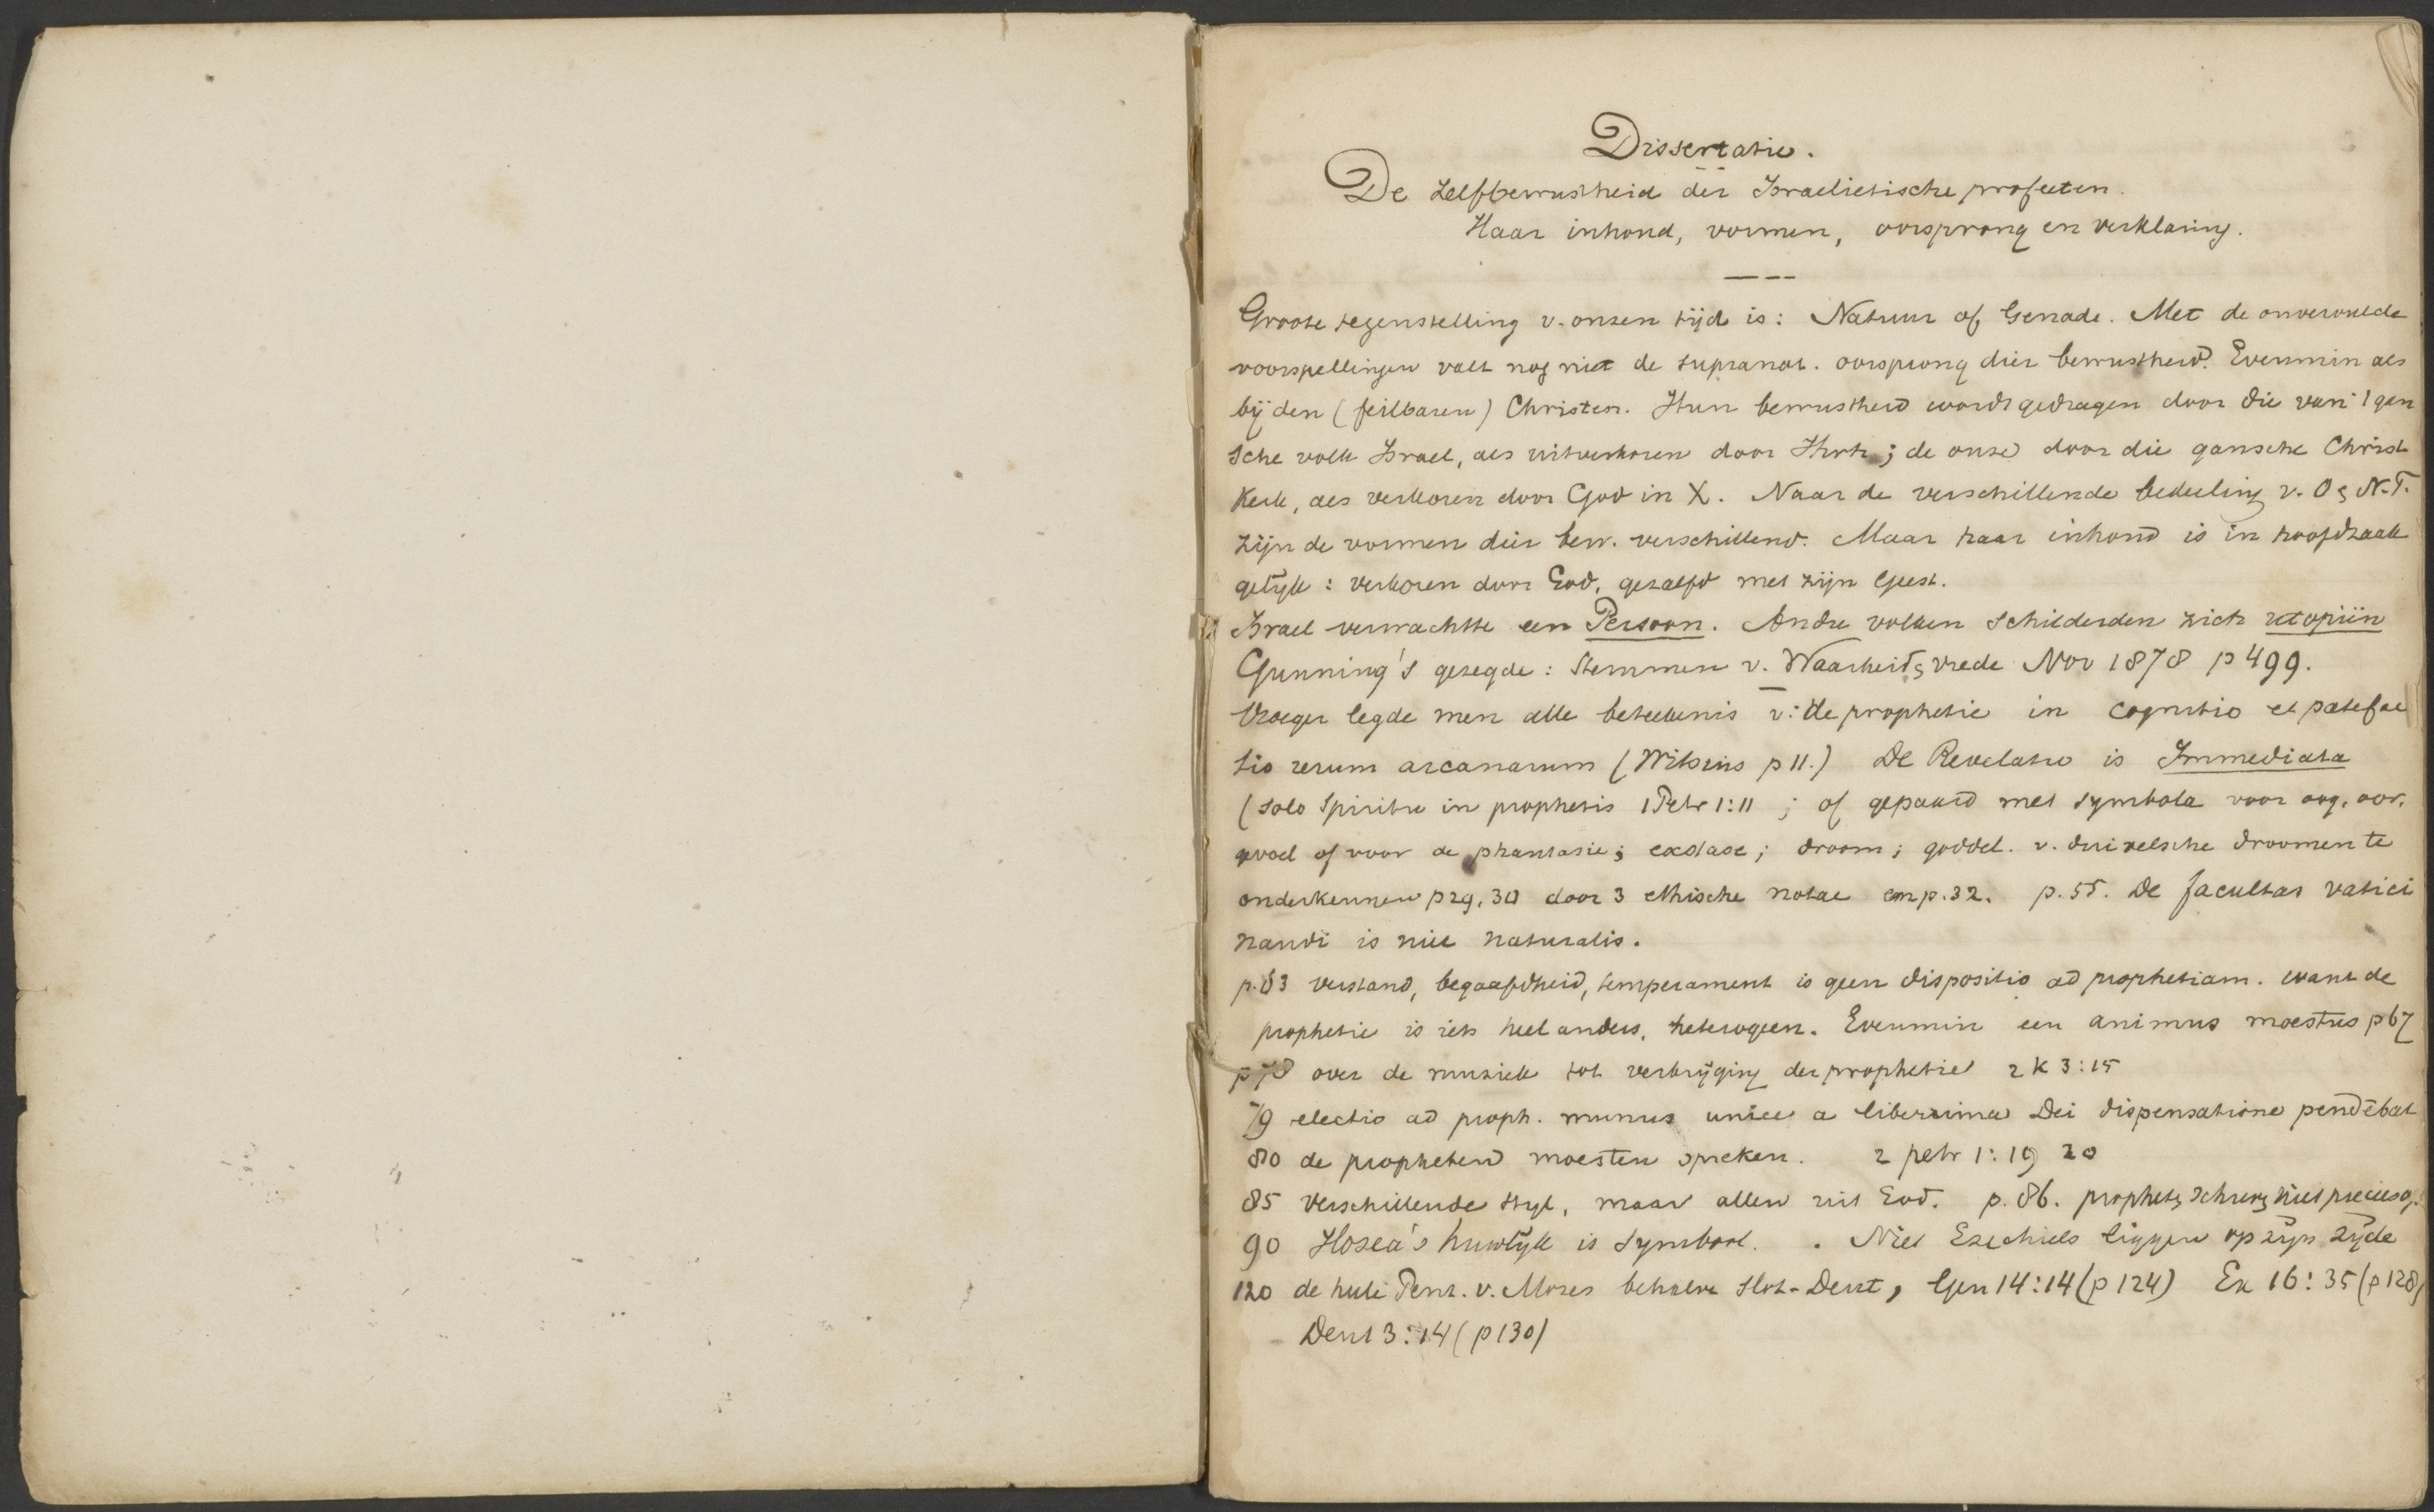 Dissertatie.
De zelfbewustheid der Israelietische profeten.
Haar inhoud, vormen, oorsprong en verklaring.
Groote tegenstelling v. onzen tijd is: Natuur of Genade. Met de onvervulde
voorspellingen valt nog niet de supranat. oorsprong dier bewustheid. Evenmin als
bij den (feilbaren) Christen. Hun bewustheid wordt gedragen door die van 't gan
sche volk Israel, als uitverkoren door ; de onze door die gansche Christ
Kerk, als verkoren door God in X. Naar de verschillende bedeeling v. O & N.T.
zijn de vormen dier bew. verschillend. Maar haar inhoud is in hoofdzaak
gelijk: verkoren door God, gezalfd met zijn Geest.
Israel verwachtte een Persoon. Andre volken schilderden zich utopiën
Gunning's gezegde: Stemmen v. Waarheid & vrede Nov 1878 p 499.
Vroeger legde men alle beteekenis v: de prophetie in cognitio et patefac
tio rerum arcanarum (Witsius p 11.) De Revelatio is Immediata
(solo Spiritu in prophetis 1 Petr 1:11 ; of gepaard met symbola voor oog, oor,
gevoel of voor de phantasie; exstase; droom; goddel. v. duivelsche droomen te
onderkennen p 29, 30 door 3 ethische notae en p. 32. p. 55. De facultas vatici
nandi is niet naturalis.
p. 63 verstand, begaafdheid, temperament is geen dispositio ad prophetiam. want de
prophetie is iets heel anders, heterogeen. Evenmin een animus moestus p 67
p 78 over de muziek tot verkrijging der prophetie 2 K 3:15
79 electio ad proph. munus unice a liberrima Dei dispensatione pendebat
80 de propheten moesten spreken. 2 petr 1:19 20
85 verschillende styl, maar allen uit God. p. 86. prophet & schreef niet precies
90 Hosea's huwlijk is symbool. . Niet Ezechiels liggen op zijn zijde
120 de hele Pent. v. Mozes behalve slot-Deut, Gen 14:14 (p 124) Ex 16:35 (p 128)
Deut 3:14 (p 130)